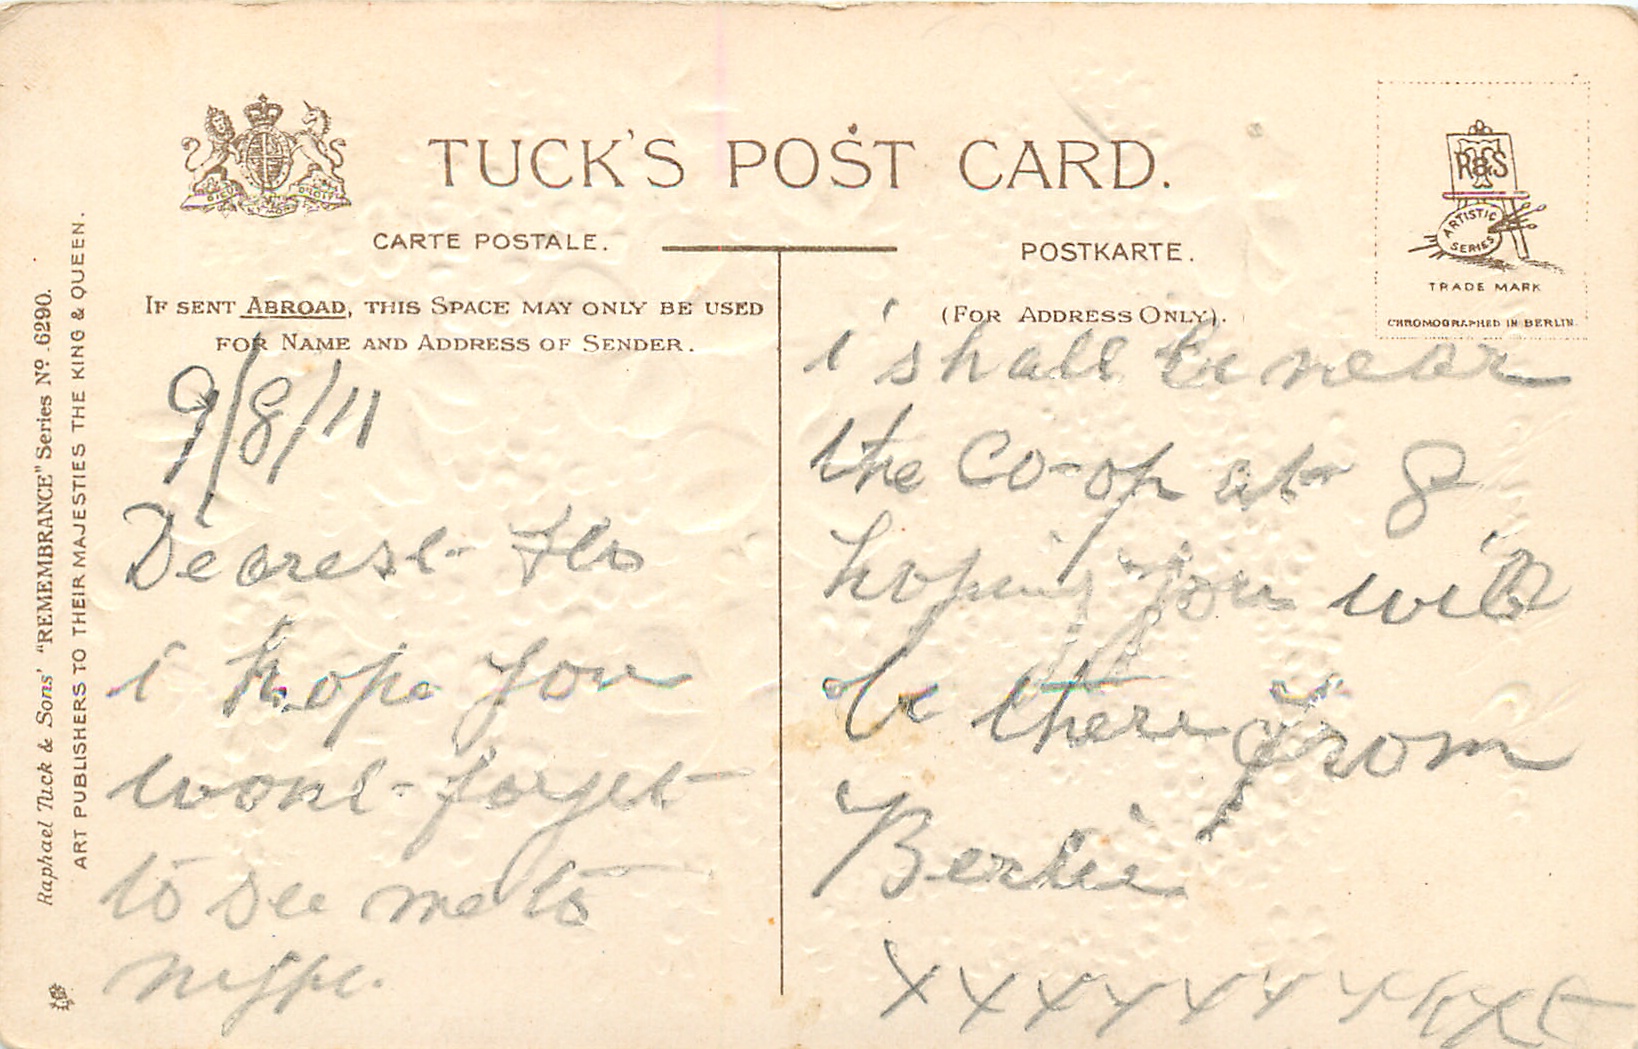 TUCK'S POST CARD.
CARTE POSTALE.
POSTKARTE.
IF SENT ABROAD, THIS SPACE MAY ONLY BE USED
FOR NAME AND ADDRESS OF SENDER.
(FOR ADDRESS ONLY).
R & S
ARTISTIC
SERIES
TRADE MARK
CHROMOGRAPHED IN BERLIN.
Raphael Tuck & Sons' "REMEMBRANCE" Series No. 6290.
ART PUBLISHERS TO THEIR MAJESTIES THE KING & QUEEN.
9/8/11
Dearest Flo
i hope you
wont forget
to see me to
i shall be near
the Co-op at 8
hoping you will
be there From
Bertie
xxxxxxxxxx